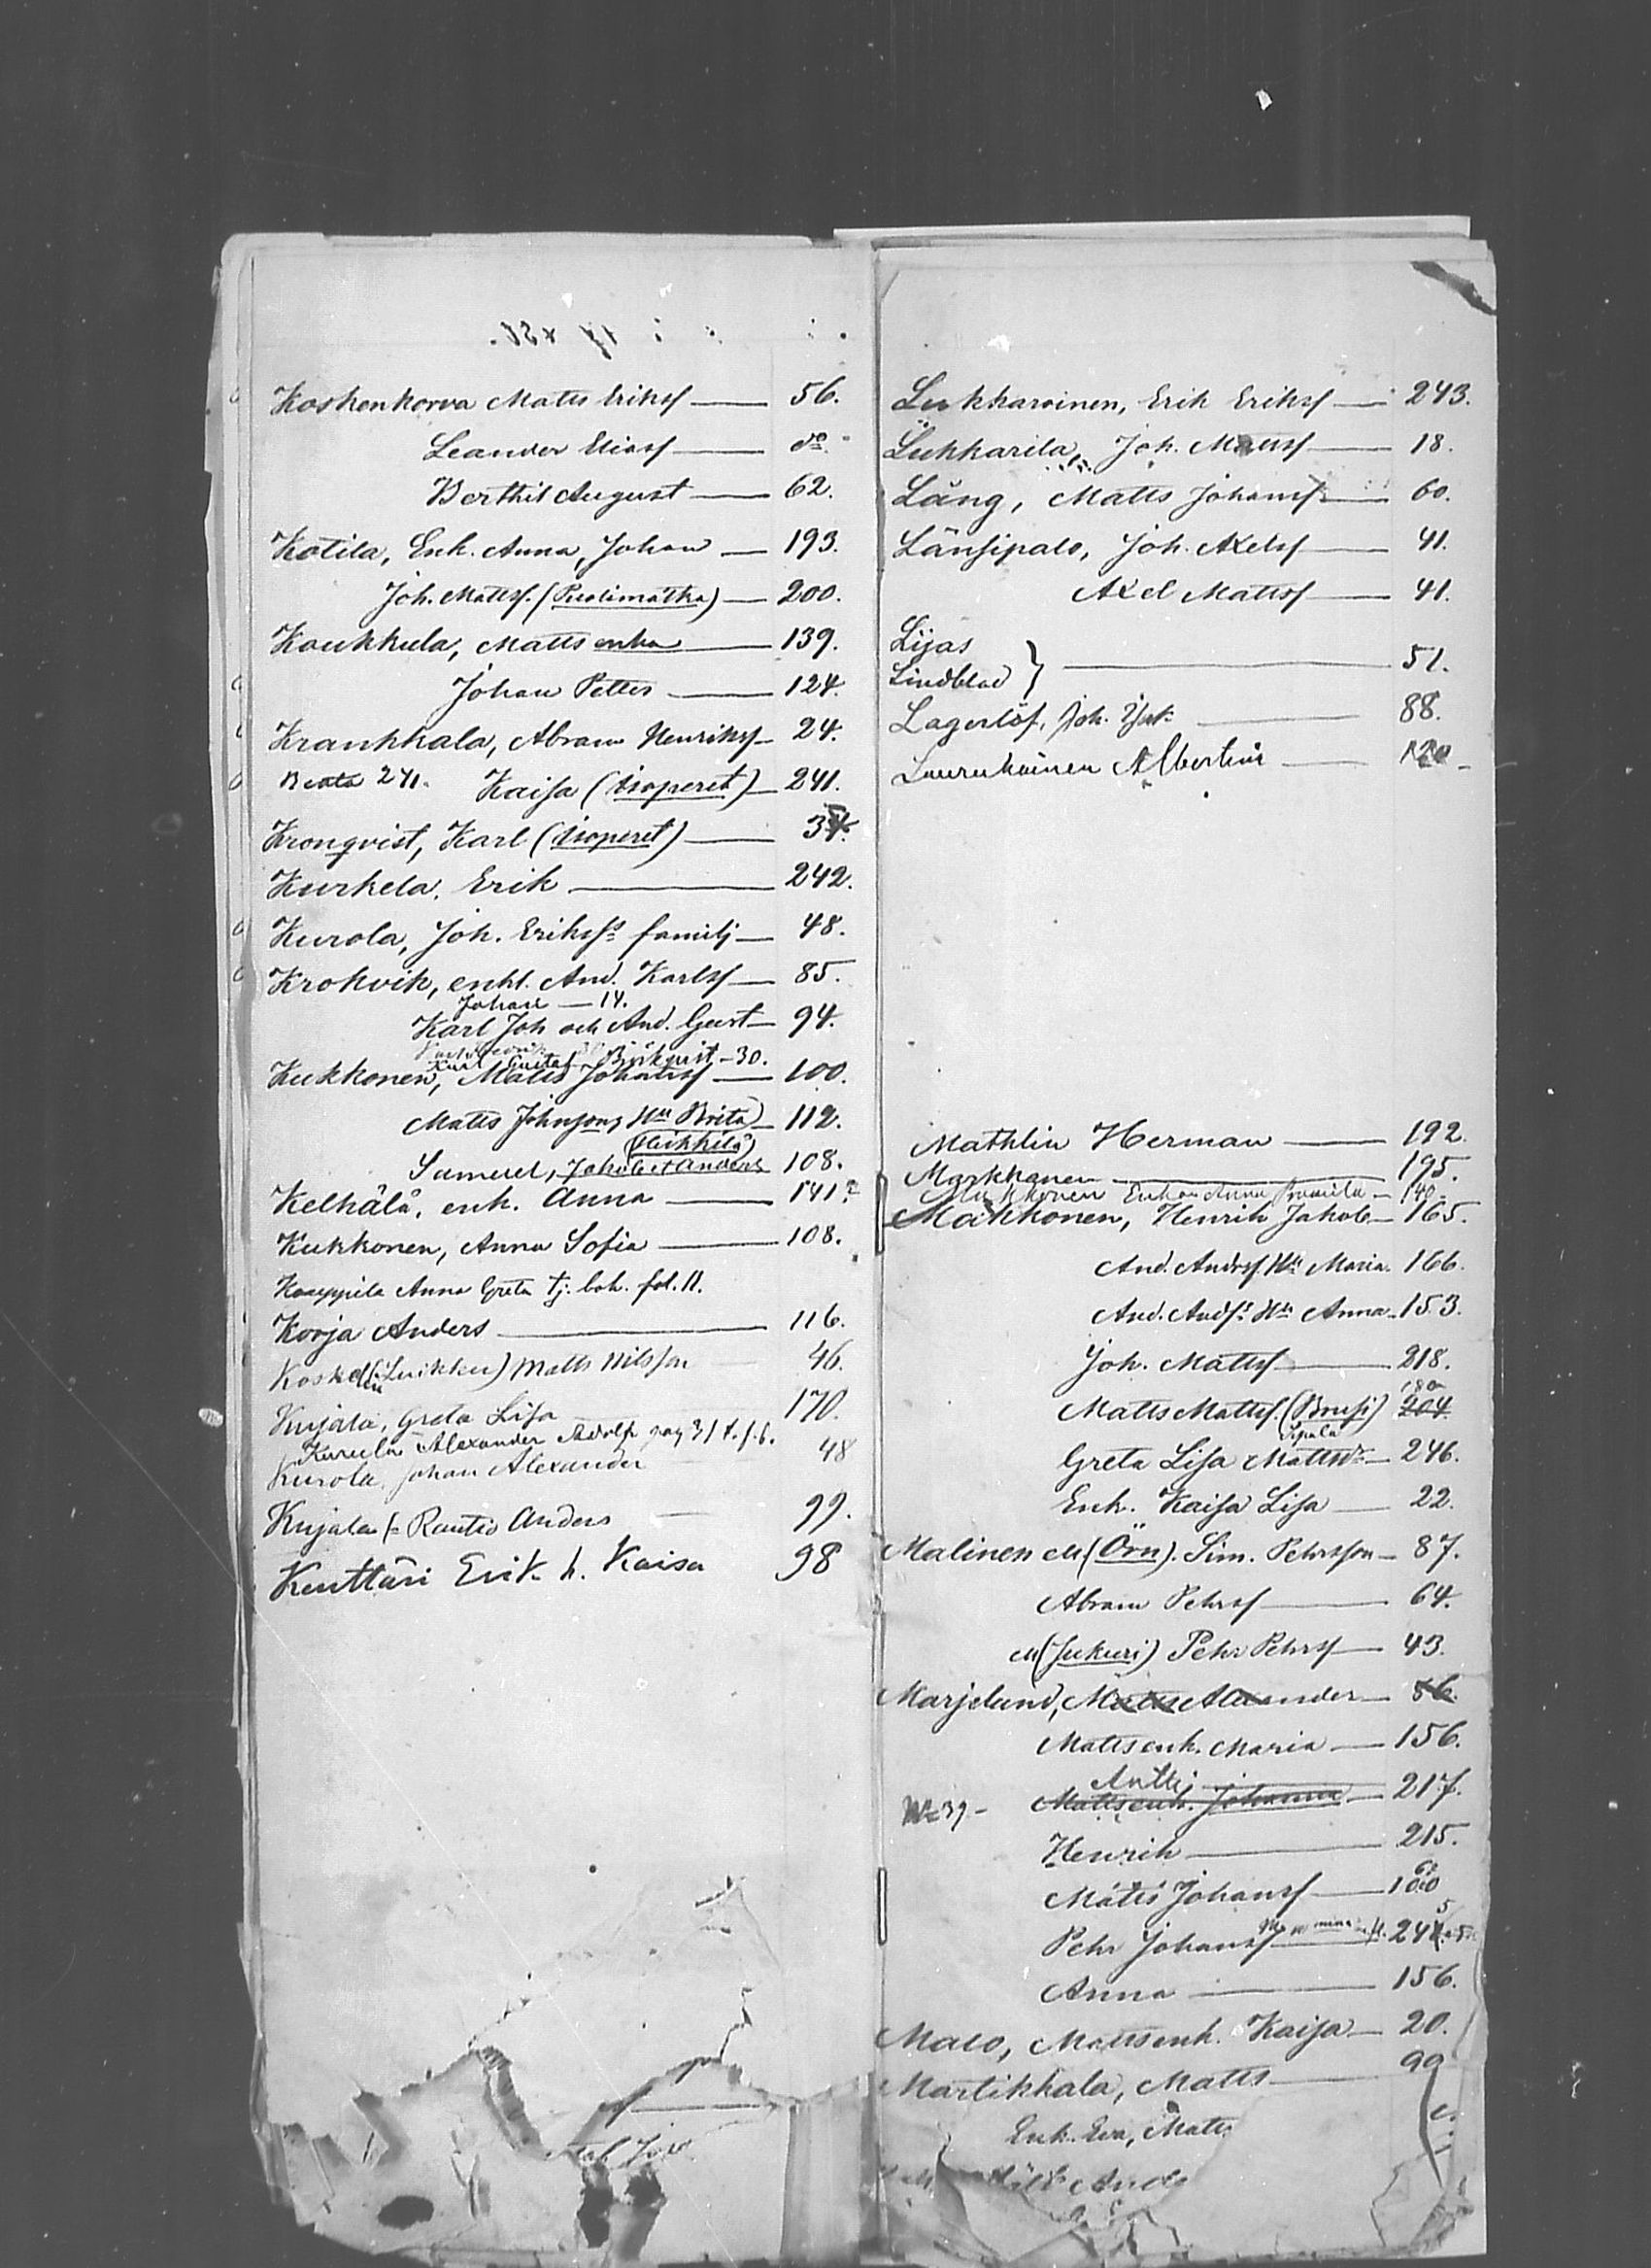 Koskenkorva Matts Eriksf — 56.
Leander Eliasf — do
Berthil August — 62.
Kotila, Enk. Anna, Johan — 193.
Joh. Mattsf. (Puolimatka) — 200.
Koukkula, Matts enka — 139.
Johan Petter — 124.
Krankkala, Abram Henriksf — 24.
Beata 241. Kaisa (Isoperet) — 241.
Kronqvist, Karl (Isoperet) — 3
Kurkela, Erik — 242.
Kurola, Joh. Eriksfs familj — 48.
Krokvik, enkl. And. Karlsf — 85.
Johan — 14.
Karl Joh och And. Gust — 94.
Karl Gustaf Björkqvist — 30.
Kukkonen, Matts Johansf — 100.
Matts Johnsons Hu Brita — 112.
(Heikkilä)
Samuel, Jakob et Anders 108.
Kelhälä, enk. Anna — 141.
Kukkonen, Anna Sofia — 108.
Anna Greta tj. bok. fol. 11.
Korja Anders — 116.
Koskela (Luikku) Matts Nilsson 46.
Kujala, Greta Lisa 170.
Kurula Alexander Adolf pag 31 t. f. 6.
Kurola, Johan Alexander 48
Kujala (= Rautio Anders — 99.
Kenttäri Erik h. Kaisa 98
Lukkaroinen, Erik Eriksf — 243.
Lukkarila, Joh. Mattsf — 18.
Lång, Matts Johansf — 60.
Länsipalo, Joh. Axelsf — 41.
Axel Mattsf — 41.
Lijas
Lindblad } — 51.
Lagerlöf, Joh. — 88.
Albertina —
Mathlin Herman — 192.
Markkanen — 195.
Enkan Anna — 140
Makkonen, Henrik Jakob — 165.
And. Andrsf. Hu Maria. 166.
And. Andfs Hu Anna — 153.
Joh. Mattsf — 218.
180
Matts Mattsf. (Brusi) 204
Greta Lisa Mattsdr — 246.
Enk. Kaisa Lisa — 22.
Malinen M (Örn). Sim. Pehrsson — 87.
Abram Pehrsf — 64.
M (Jukuri) Pehr Pehrsf — 43.
Marjelund, Matts Alexander — 56.
Matts enk. Maria — 156.
Antti
39 — Matts enk. Johanna — 217.
Henrik — 215.
Matts Johansf — 100
Pehr Johansf 24
Anna — 156.
Malo, Matts enk. Kaisa — 20.
Martikkala, Matts — 99
Enk. Eva, Matts